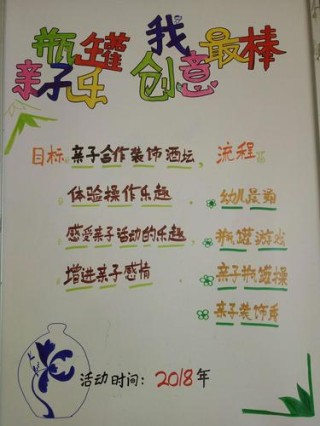 瓶罐
亲子乐
我
创意最棒
目标:亲子合作装饰酒坛,
体验操作乐趣
感受亲子活动的乐趣,
增进亲子感情
流程:
幼儿
瓶罐游戏
亲子瓶罐操
亲子装饰
活动时间:2018年